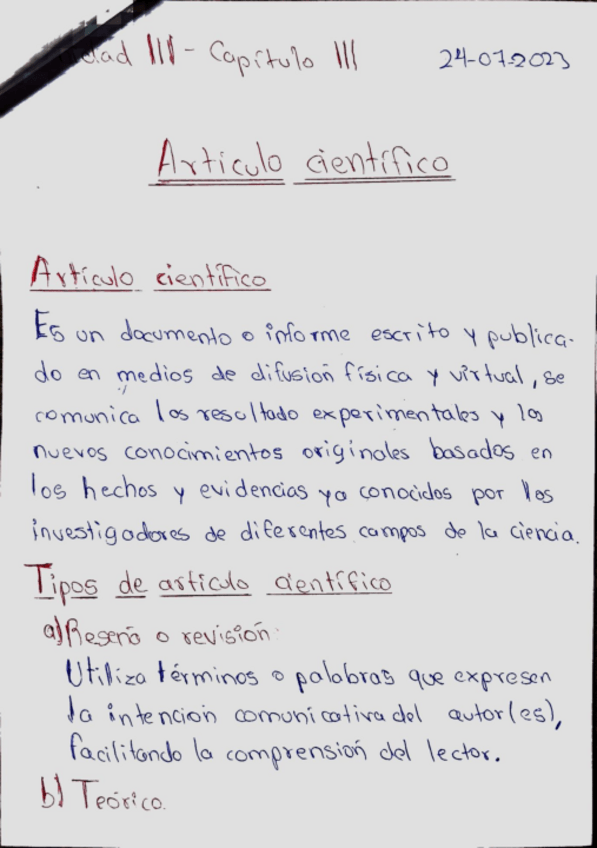 Unidad III - Capítulo III 24-07-2023
Artículo científico
Artículo científico
Es un documento o informe escrito y publica-
do en medios de difusión física y virtual, se
comunica los resultado experimentales y los
nuevos conocimientos originales basados en
los hechos y evidencias ya conocidos por los
investigadores de diferentes campos de la ciencia.
Tipos de artículo científico
a) Reseña o revisión:
Utiliza términos o palabras que expresen
la intención comunicativa del autor(es),
facilitando la comprensión del lector.
b) Teórico.